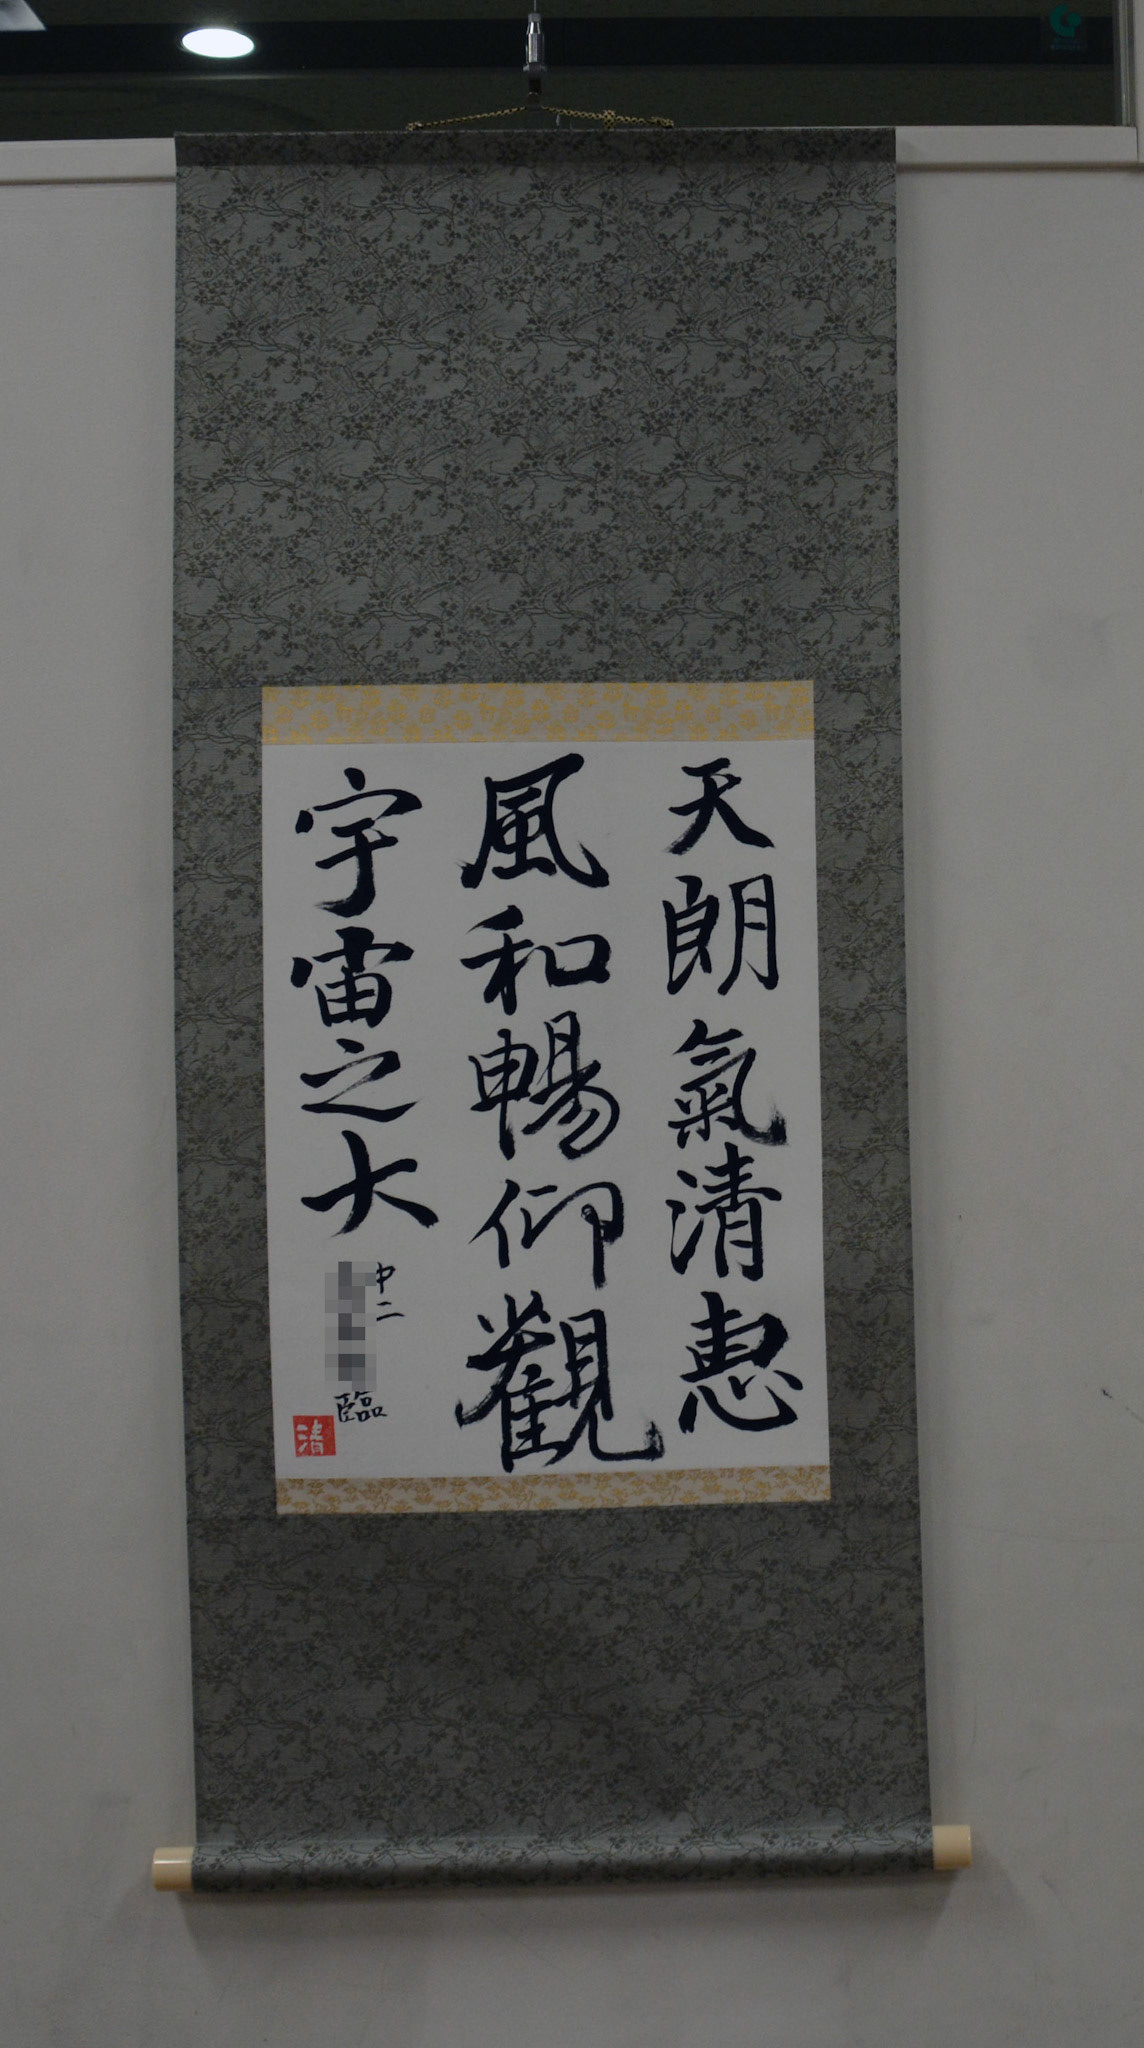 天朗氣清惠
風和暢仰觀
宇宙之大
中二
臨
清